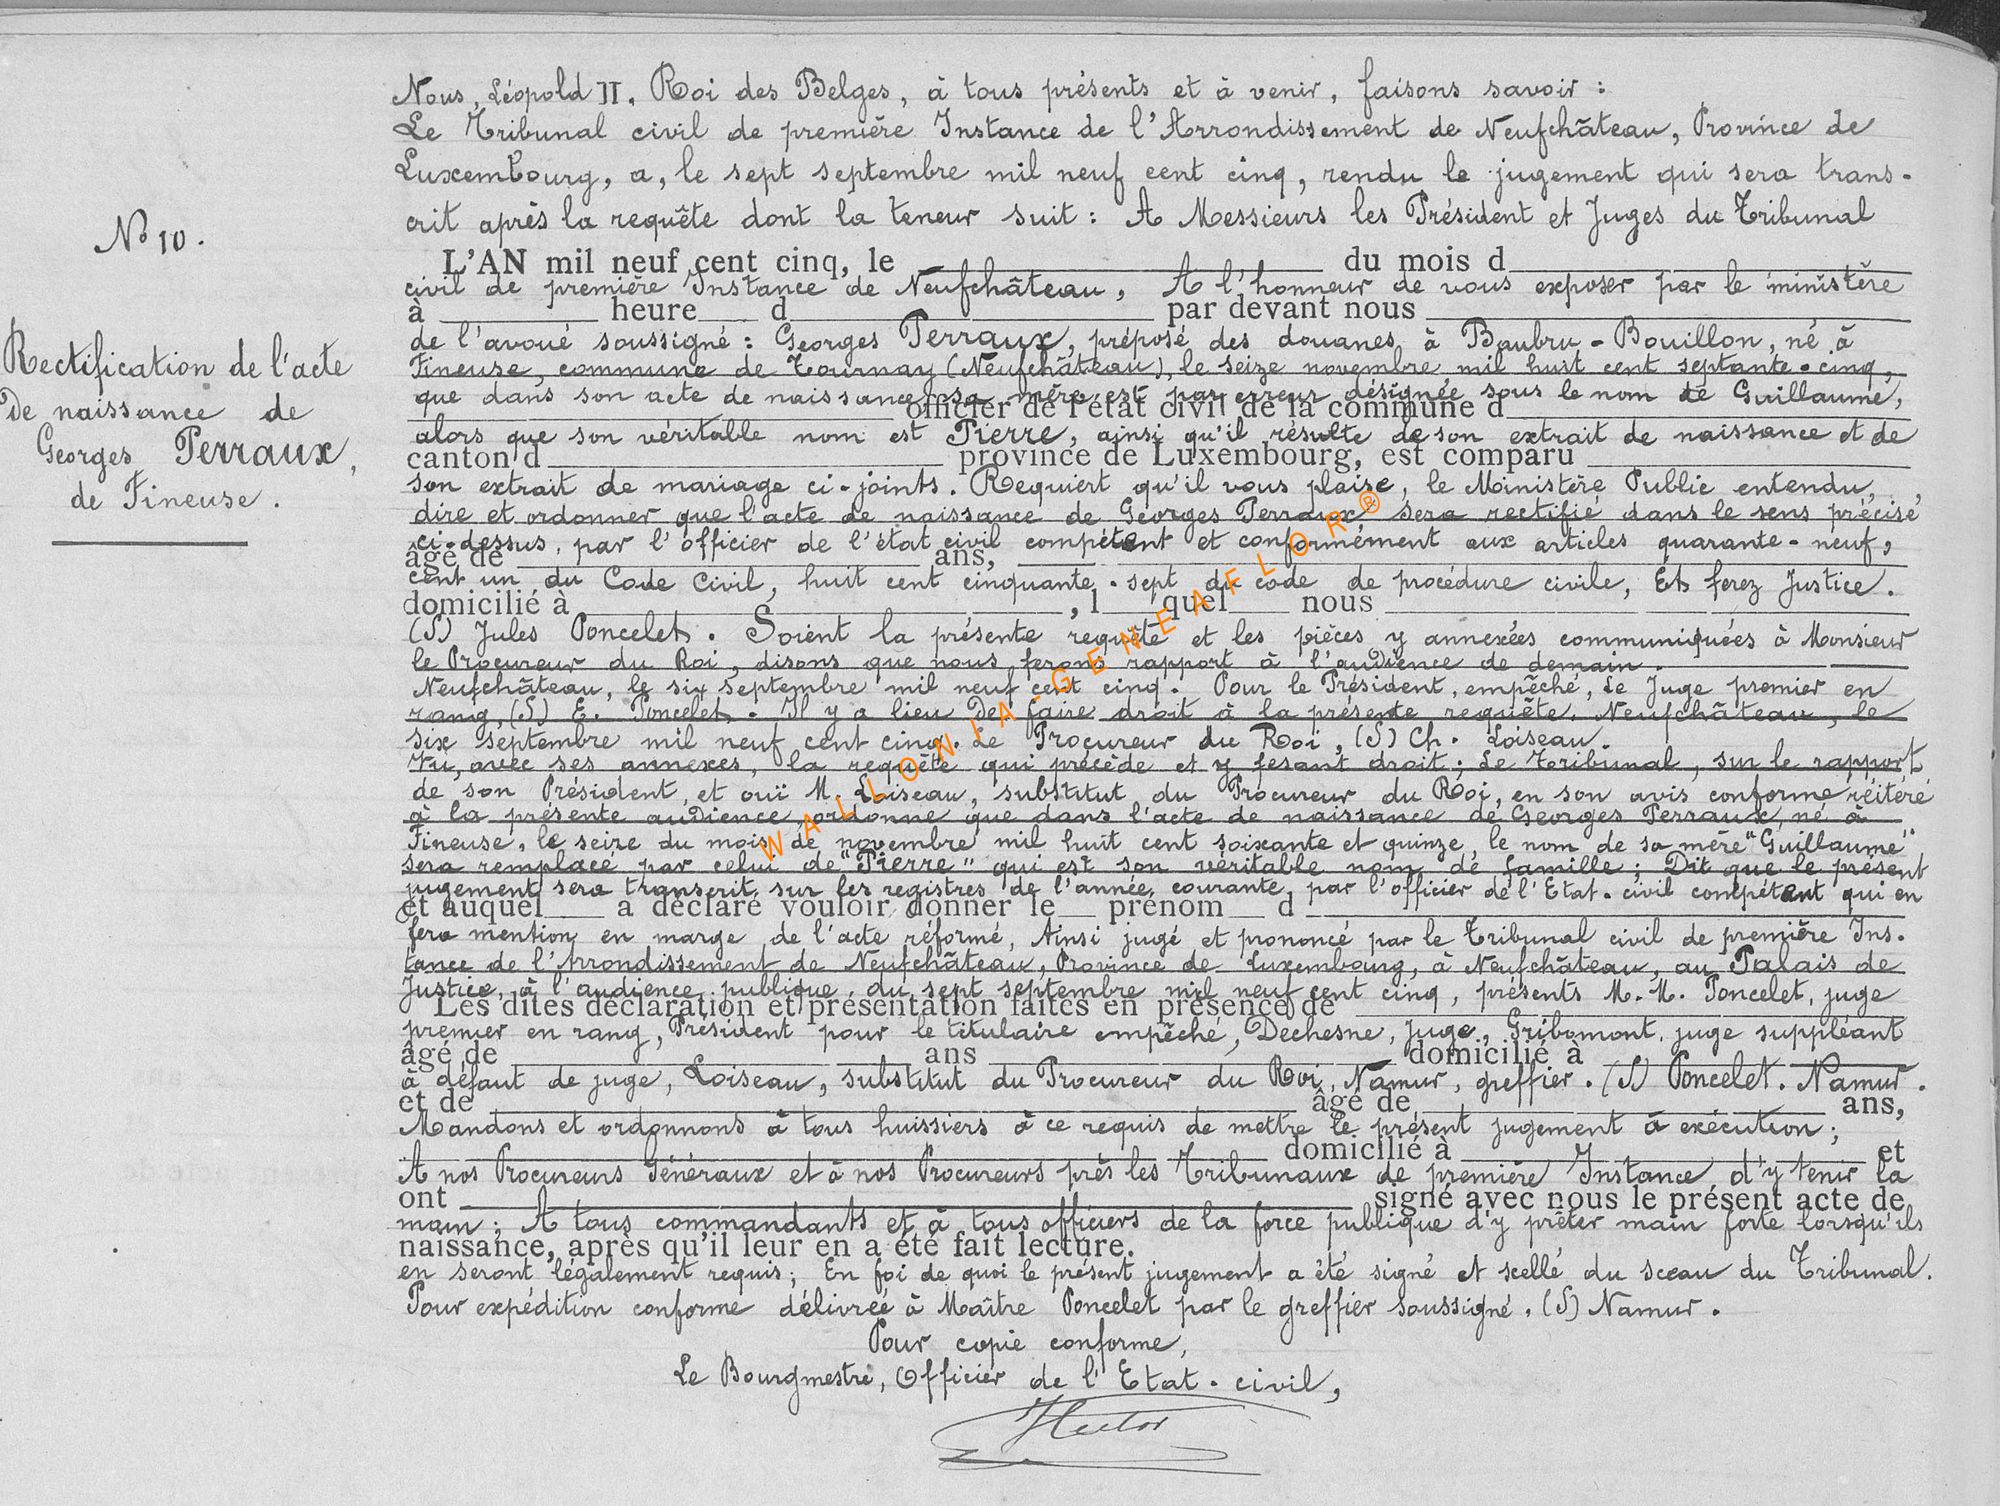 Nous, Léopold II, Roi des Belges, à tous présents et à venir, faisons savoir :
Le Tribunal civil de première Instance de l'Arrondissement de Neufchâteau, Province de
Luxembourg, a, le sept septembre mil neuf cent cinq, rendu le jugement qui sera trans-
crit après la requête dont la teneur suit : A Messieurs les Président et Juges du Tribunal
No 10.
L'AN mil neuf cent cinq, le du mois d
civil de première Instance de Neufchâteau, A l'honneur de vous exposer par le ministère
à heure d par devant nous
de l'avoué soussigné : Georges Perraux, préposé des douanes à Beaubru-Bouillon, né à
Rectification de l'acte
De naissance de
Georges Perraux,
de Fineuse.
Fineuse, commune de Tournay (Neufchâteau), le seize novembre mil huit cent septante-cinq,
que dans son acte de naissance sa mère est par erreur désignée sous le nom de Guillaume,
officier de l'état civil de la commune d
alors que son véritable nom est Pierre, ainsi qu'il résulte de son extrait de naissance et de
canton d province de Luxembourg, est comparu
son extrait de mariage ci-joints. Requiert qu'il vous plaise, le Ministère Public entendu,
dire et ordonner que l'acte de naissance de Georges Perraux, sera rectifié dans le sens précisé
ci-dessus, par l'officier de l'état civil compétent et conformément aux articles quarante-neuf,
âgé de ans,
cent un du Code Civil, huit cent cinquante-sept du code de procédure civile, Et ferez Justice.
domicilié à , l quel nous
(S) Jules Poncelet. Soient la présente requête et les pièces y annexées communiquées à Monsieur
le Procureur du Roi, disons que nous ferons rapport à l'audience de demain.
Neufchâteau, le six septembre mil neuf cent cinq. Pour le Président, empêché, Le Juge premier en
rang, (S) E. Poncelet. Il y a lieu De faire droit à la présente requête. Neufchâteau, le
six septembre mil neuf cent cinq. Le Procureur du Roi, (S) Ch. Loiseau.
Vu, avec ses annexes, la requête qui précède et y fesant droit ; Le Tribunal, sur le rapport
de son Président, et ouï M. Loiseau, substitut du Procureur du Roi, en son avis conforme réitéré
à la présente audience, ordonne que dans l'acte de naissance de Georges Perraux, né à
Fineuse, le seize du mois de novembre mil huit cent soixante et quinze, le nom de sa mère "Guillaume"
sera remplacé par celui de "Pierre" qui est son véritable nom de famille ; Dit que le présent
jugement sera transcrit sur les registres de l'année courante par l'officier de l'Etat-civil compétent qui en
et auquel a déclaré vouloir donner le prénom d
fera mention en marge de l'acte réformé, Ainsi jugé et prononcé par le Tribunal civil de première Ins-
tance de l'Arrondissement de Neufchâteau, Province de Luxembourg, à Neufchâteau, au Palais de
Justice, à l'audience publique du sept septembre mil neuf cent cinq, présents M.M. Poncelet, juge
Les dites déclaration et présentation faites en présence de
premier en rang, Président pour le titulaire empêché, Dechesne, Juge, Gribomont, juge suppléant
âgé de ans domicilié à
à défaut de juge, Loiseau, substitut du Procureur du Roi, Namur, greffier. (S) Poncelet. Namur.
et de âgé de ans,
Mandons et ordonnons à tous huissiers à ce requis de mettre le présent jugement à exécution ;
domicilié à et
A nos Procureurs Généraux et à nos Procureurs près les Tribunaux de première Instance d'y tenir la
ont signé avec nous le présent acte de
main ; A tous commandants et à tous officiers de la force publique d'y prêter main forte lorsqu'ils
naissance, après qu'il leur en a été fait lecture.
en seront légalement requis ; En foi de quoi le présent jugement a été signé et scellé du sceau du Tribunal.
Pour expédition conforme délivrée à Maître Poncelet par le greffier soussigné. (S) Namur.
Pour copie conforme,
Le Bourgmestre, Officier de l'Etat-civil,
WALLONIA-GENEAFLOR®